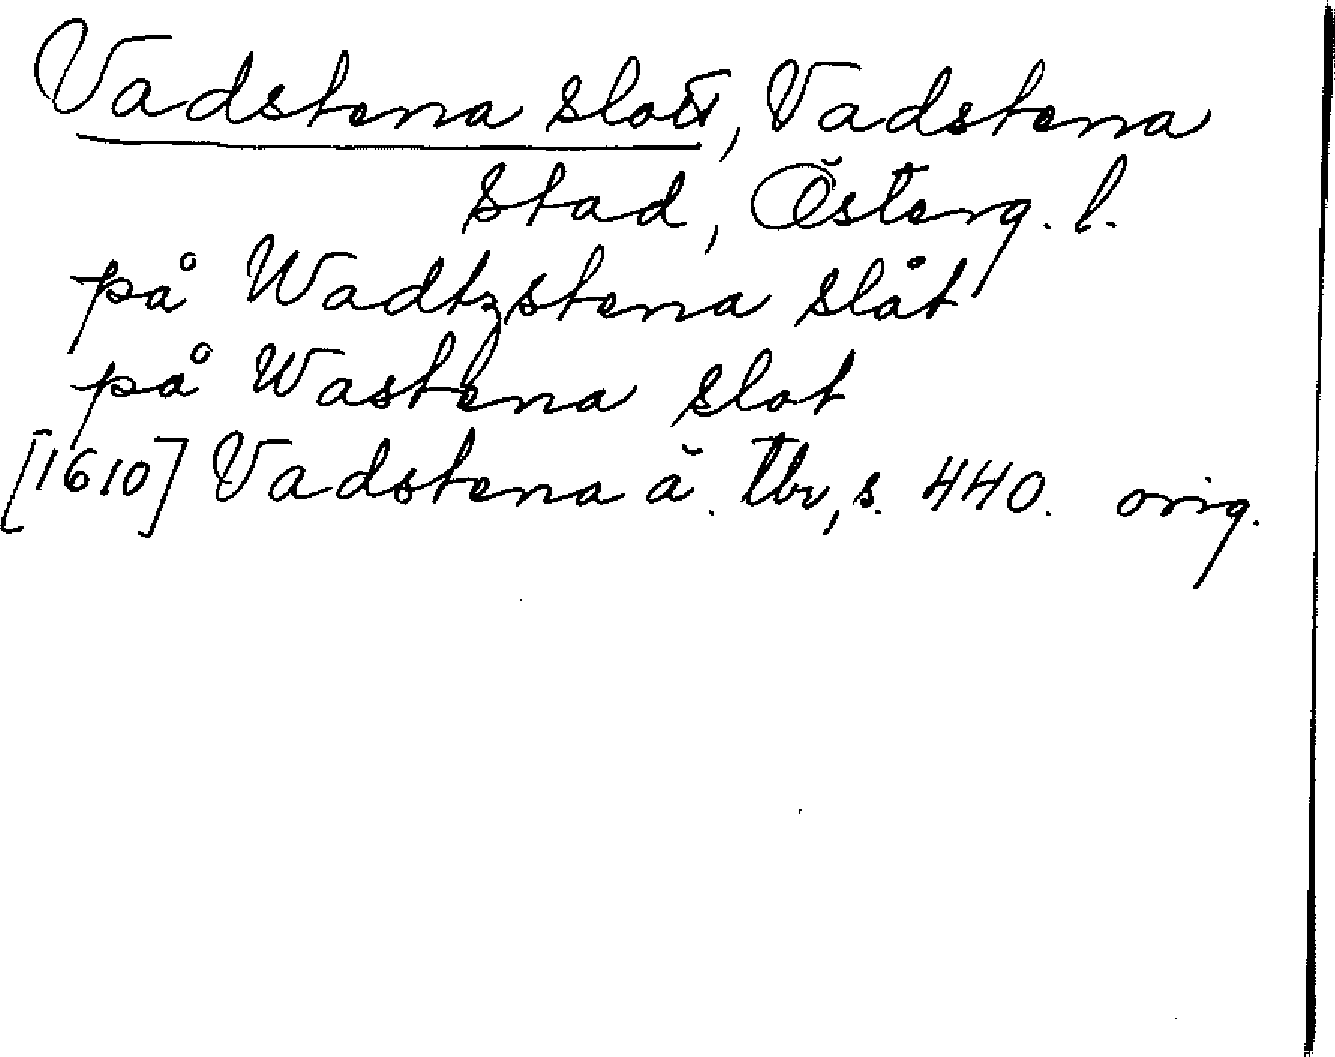 Vadstena slott, Vadstena
stad, Österg. l.
på Wadtzstena slåt
på Wastena slot
[1610] Vadstena ä. tbr, s. 440. orig.